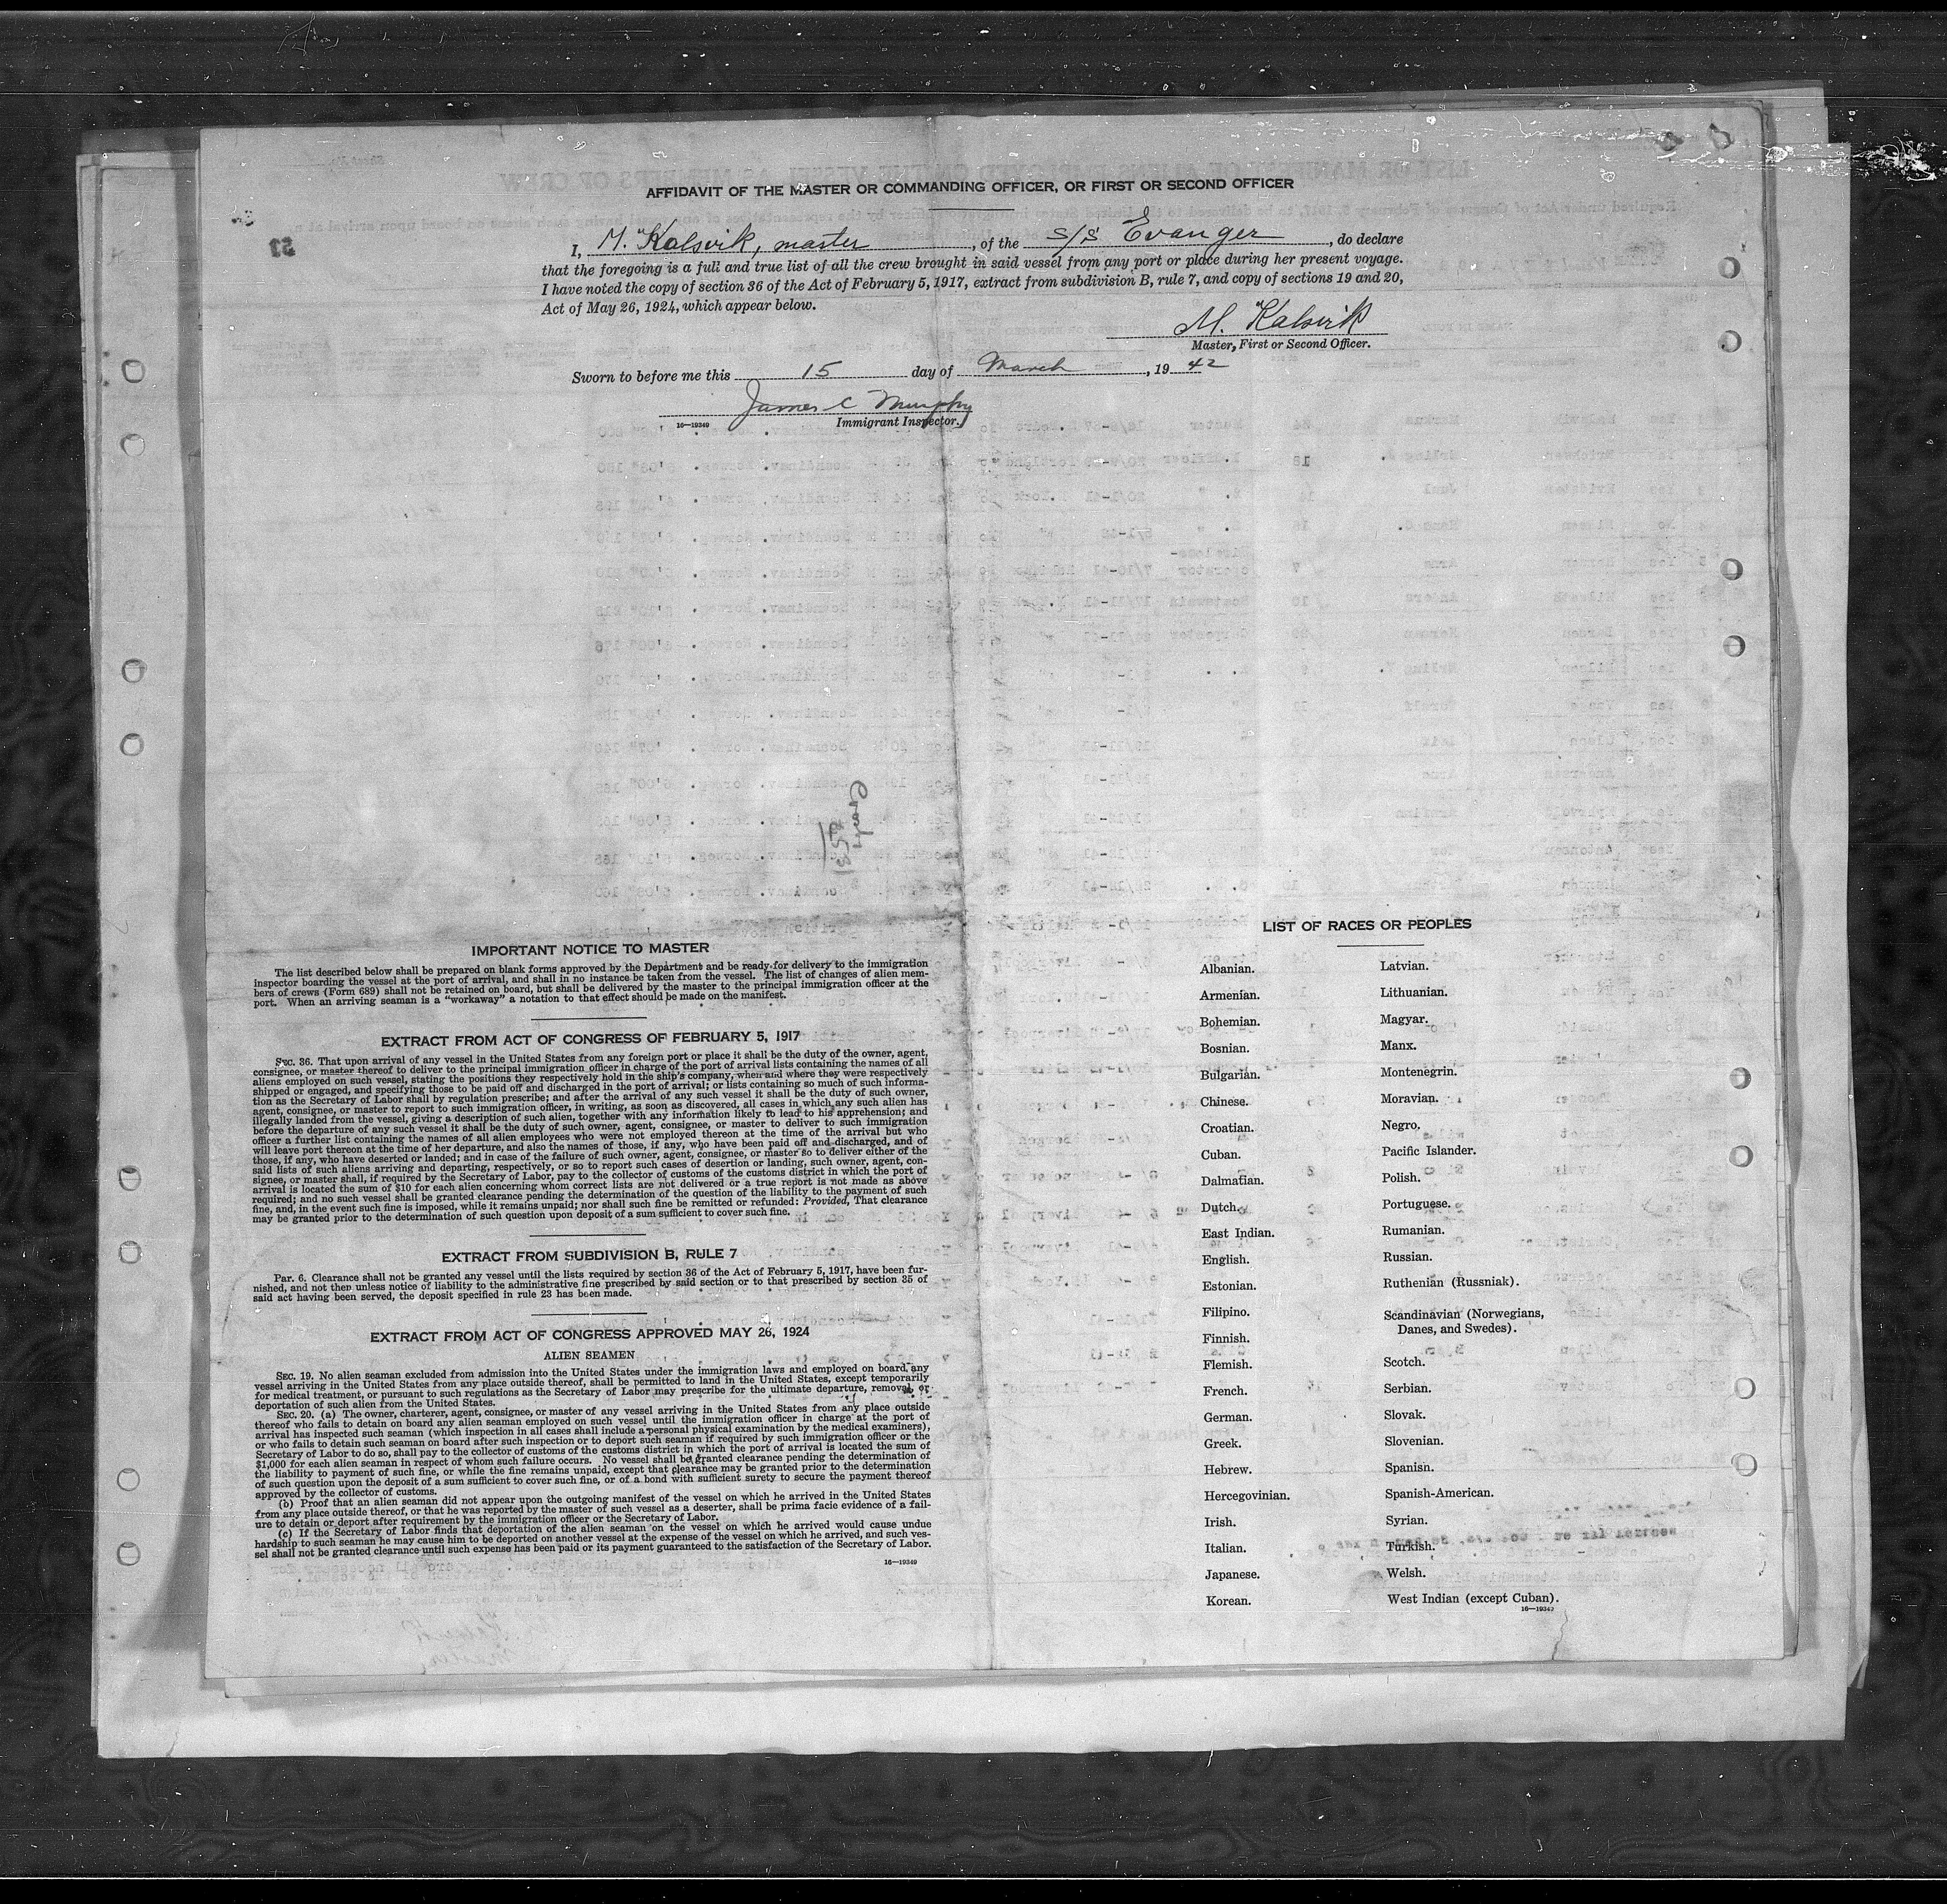 AFFIDAVIT OF THE MASTER OR COMMANDING OFFICER, OR FIRST OR SECOND OFFICER
I, M. Kalsvik, master, of the S/S Evanger, do declare
that the foregoing is a full and true list of all the crew brought in said vessel from any port or place during her present voyage.
I have noted the copy of section 36 of the Act of February 5, 1917, extract from subdivision B, rule 7, and copy of sections 19 and 20,
Act of May 26, 1924, which appear below.
M. Kalsvik
Master, First or Second Officer.
Sworn to before me this 15 day of March, 1942
James C Murphy
16—19349 Immigrant Inspector.
IMPORTANT NOTICE TO MASTER
The list described below shall be prepared on blank forms approved by the Department and be ready for delivery to the immigration
inspector boarding the vessel at the port of arrival, and shall in no instance be taken from the vessel. The list of changes of alien mem-
bers of crews (Form 689) shall not be retained on board, but shall be delivered by the master to the principal immigration officer at the
port. When an arriving seaman is a "workaway" a notation to that effect should be made on the manifest.
EXTRACT FROM ACT OF CONGRESS OF FEBRUARY 5, 1917
SEC. 36. That upon arrival of any vessel in the United States from any foreign port or place it shall be the duty of the owner, agent,
consignee, or master thereof to deliver to the principal immigration officer in charge of the port of arrival lists containing the names of all
aliens employed on such vessel, stating the positions they respectively hold in the ship's company, when and where they were respectively
shipped or engaged, and specifying those to be paid off and discharged in the port of arrival; or lists containing so much of such informa-
tion as the Secretary of Labor shall by regulation prescribe; and after the arrival of any such vessel it shall be the duty of such owner,
agent, consignee, or master to report to such immigration officer, in writing, as soon as discovered, all cases in which any such alien has
illegally landed from the vessel, giving a description of such alien, together with any information likely to lead to his apprehension; and
before the departure of any such vessel it shall be the duty of such owner, agent, consignee, or master to deliver to such immigration
officer a further list containing the names of all alien employees who were not employed thereon at the time of the arrival but who
will leave port thereon at the time of her departure, and also the names of those, if any, who have been paid off and discharged, and of
those, if any, who have deserted or landed; and in case of the failure of such owner, agent, consignee, or master so to deliver either of the
said lists of such aliens arriving and departing, respectively, or so to report such cases of desertion or landing, such owner, agent, con-
signee, or master shall, if required by the Secretary of Labor, pay to the collector of customs of the customs district in which the port of
arrival is located the sum of $10 for each alien concerning whom correct lists are not delivered or a true report is not made as above
required; and no such vessel shall be granted clearance pending the determination of the question of the liability to the payment of such
fine, and, in the event such fine is imposed, while it remains unpaid; nor shall such fine be remitted or refunded: Provided, That clearance
may be granted prior to the determination of such question upon deposit of a sum sufficient to cover such fine.
EXTRACT FROM SUBDIVISION B, RULE 7
Par. 6. Clearance shall not be granted any vessel until the lists required by section 36 of the Act of February 5, 1917, have been fur-
nished, and not then unless notice of liability to the administrative fine prescribed by said section or to that prescribed by section 35 of
said act having been served, the deposit specified in rule 23 has been made.
EXTRACT FROM ACT OF CONGRESS APPROVED MAY 26, 1924
ALIEN SEAMEN
SEC. 19. No alien seaman excluded from admission into the United States under the immigration laws and employed on board any
vessel arriving in the United States from any place outside thereof, shall be permitted to land in the United States, except temporarily
for medical treatment, or pursuant to such regulations as the Secretary of Labor may prescribe for the ultimate departure, removal or
deportation of such alien from the United States.
SEC. 20. (a) The owner, charterer, agent, consignee, or master of any vessel arriving in the United States from any place outside
thereof who fails to detain on board any alien seaman employed on such vessel until the immigration officer in charge at the port of
arrival has inspected such seaman (which inspection in all cases shall include a personal physical examination by the medical examiners),
or who fails to detain such seaman on board after such inspection or to deport such seaman if required by such immigration officer or the
Secretary of Labor to do so, shall pay to the collector of customs of the customs district in which the port of arrival is located the sum of
$1,000 for each alien seaman in respect of whom such failure occurs. No vessel shall be granted clearance pending the determination of
the liability to payment of such fine, or while the fine remains unpaid, except that clearance may be granted prior to the determination
of such question upon the deposit of a sum sufficient to cover such fine, or of a bond with sufficient surety to secure the payment thereof
approved by the collector of customs.
(b) Proof that an alien seaman did not appear upon the outgoing manifest of the vessel on which he arrived in the United States
from any place outside thereof, or that he was reported by the master of such vessel as a deserter, shall be prima facie evidence of a fail-
ure to detain or deport after requirement by the immigration officer or the Secretary of Labor.
(c) If the Secretary of Labor finds that deportation of the alien seaman on the vessel on which he arrived would cause undue
hardship to such seaman he may cause him to be deported on another vessel at the expense of the vessel on which he arrived, and such ves-
sel shall not be granted clearance until such expense has been paid or its payment guaranteed to the satisfaction of the Secretary of Labor.
16—19349
LIST OF RACES OR PEOPLES
Albanian.
Armenian.
Bohemian.
Bosnian.
Bulgarian.
Chinese.
Croatian.
Cuban.
Dalmatian.
Dutch.
East Indian.
English.
Estonian.
Filipino.
Finnish.
Flemish.
French.
German.
Greek.
Hebrew.
Hercegovinian.
Irish.
Italian.
Japanese.
Korean.
Latvian.
Lithuanian.
Magyar.
Manx.
Montenegrin.
Moravian.
Negro.
Pacific Islander.
Polish.
Portuguese.
Rumanian.
Russian.
Ruthenian (Russniak).
Scandinavian (Norwegians,
Danes, and Swedes).
Scotch.
Serbian.
Slovak.
Slovenian.
Spanish.
Spanish-American.
Syrian.
Turkish.
Welsh.
West Indian (except Cuban).
16—19349